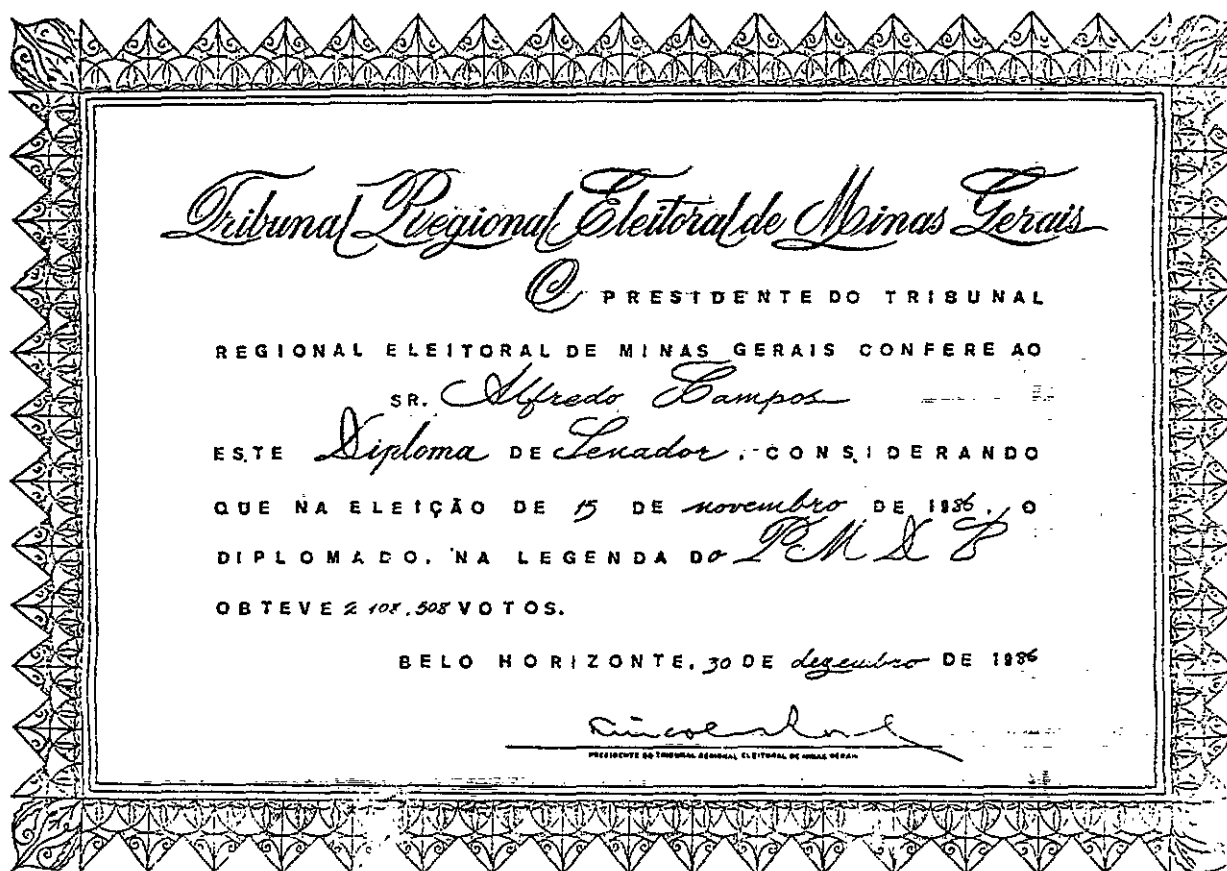 Tribunal Regional Eleitoral de Minas Gerais
O PRESIDENTE DO TRIBUNAL
REGIONAL ELEITORAL DE MINAS GERAIS CONFERE AO
SR. Alfredo Campos
ESTE Diploma DE Senador, CONSIDERANDO
QUE NA ELEIÇÃO DE 15 DE novembro DE 1986, O
DIPLOMADO, NA LEGENDA Do PMDB
OBTEVE 2 108.508 VOTOS.
BELO HORIZONTE, 30 DE dezembro DE 1986
PRESIDENTE DO TRIBUNAL REGIONAL ELEITORAL DE MINAS GERAIS